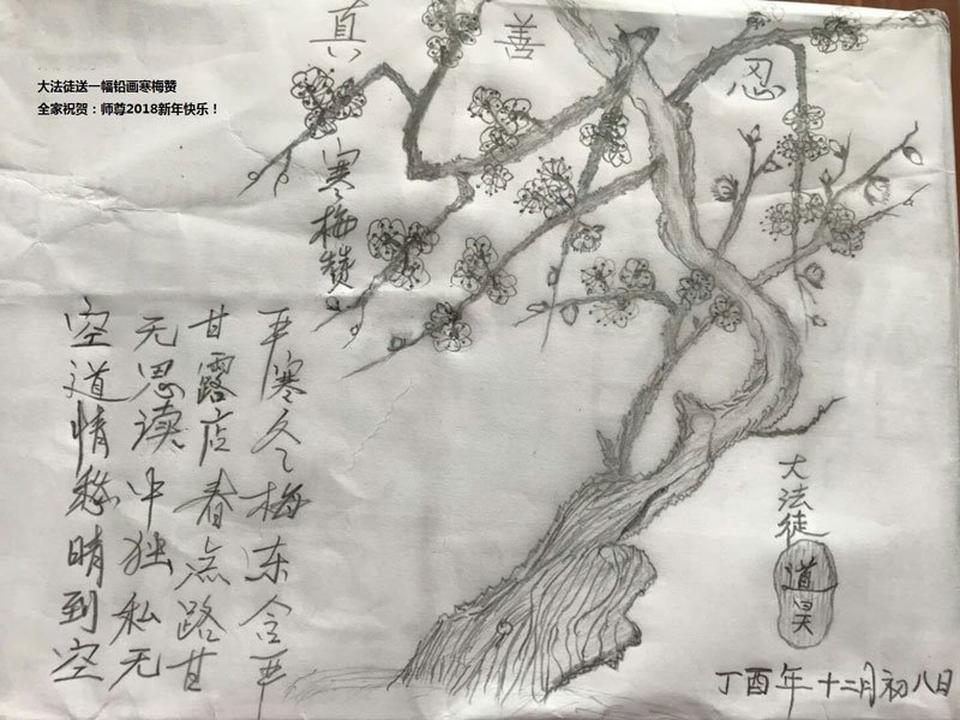 大法徒送一幅铅画寒梅赞
全家祝贺：师尊2018新年快乐！
真
善
忍
寒梅赞
严寒久久梅冻含严
甘露店春点路甘
无思读中独私无
空道情愁晴到空
大法徒
道昊
丁酉年十二月初八日